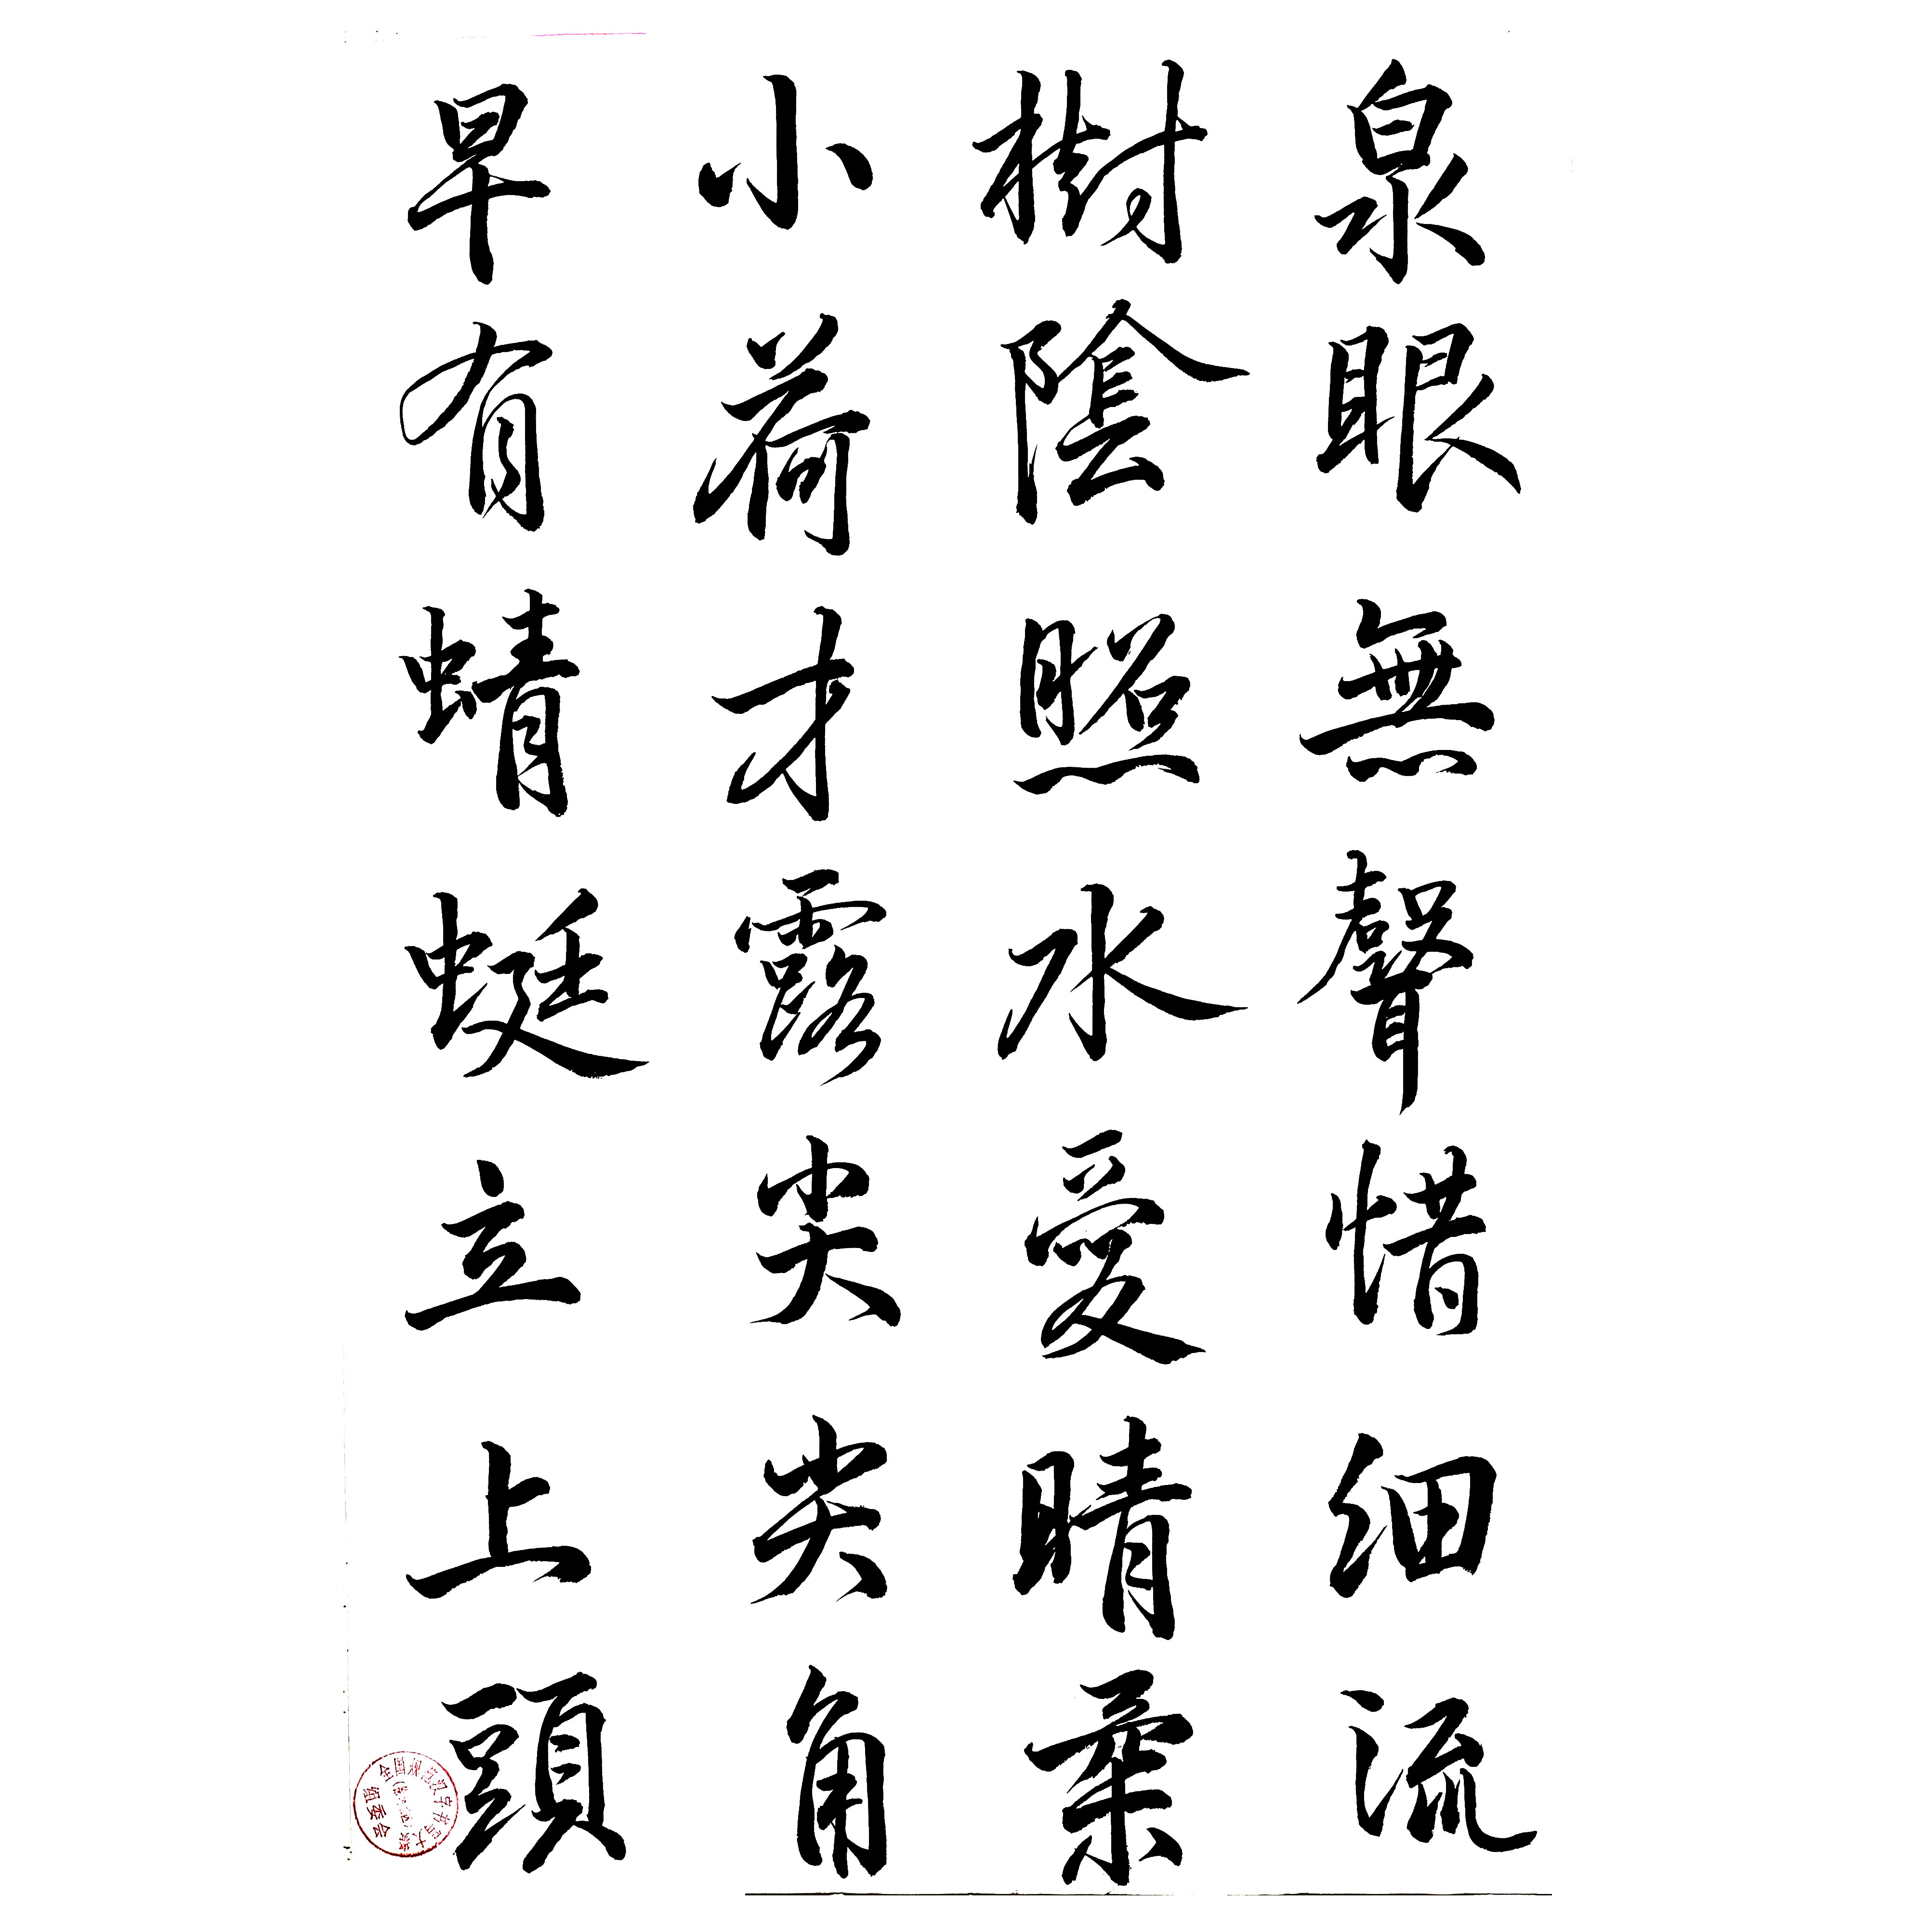 泉眼無聲惜細流
樹陰照水愛晴柔
小荷才露尖尖角
早有蜻蜓立上頭
組委会